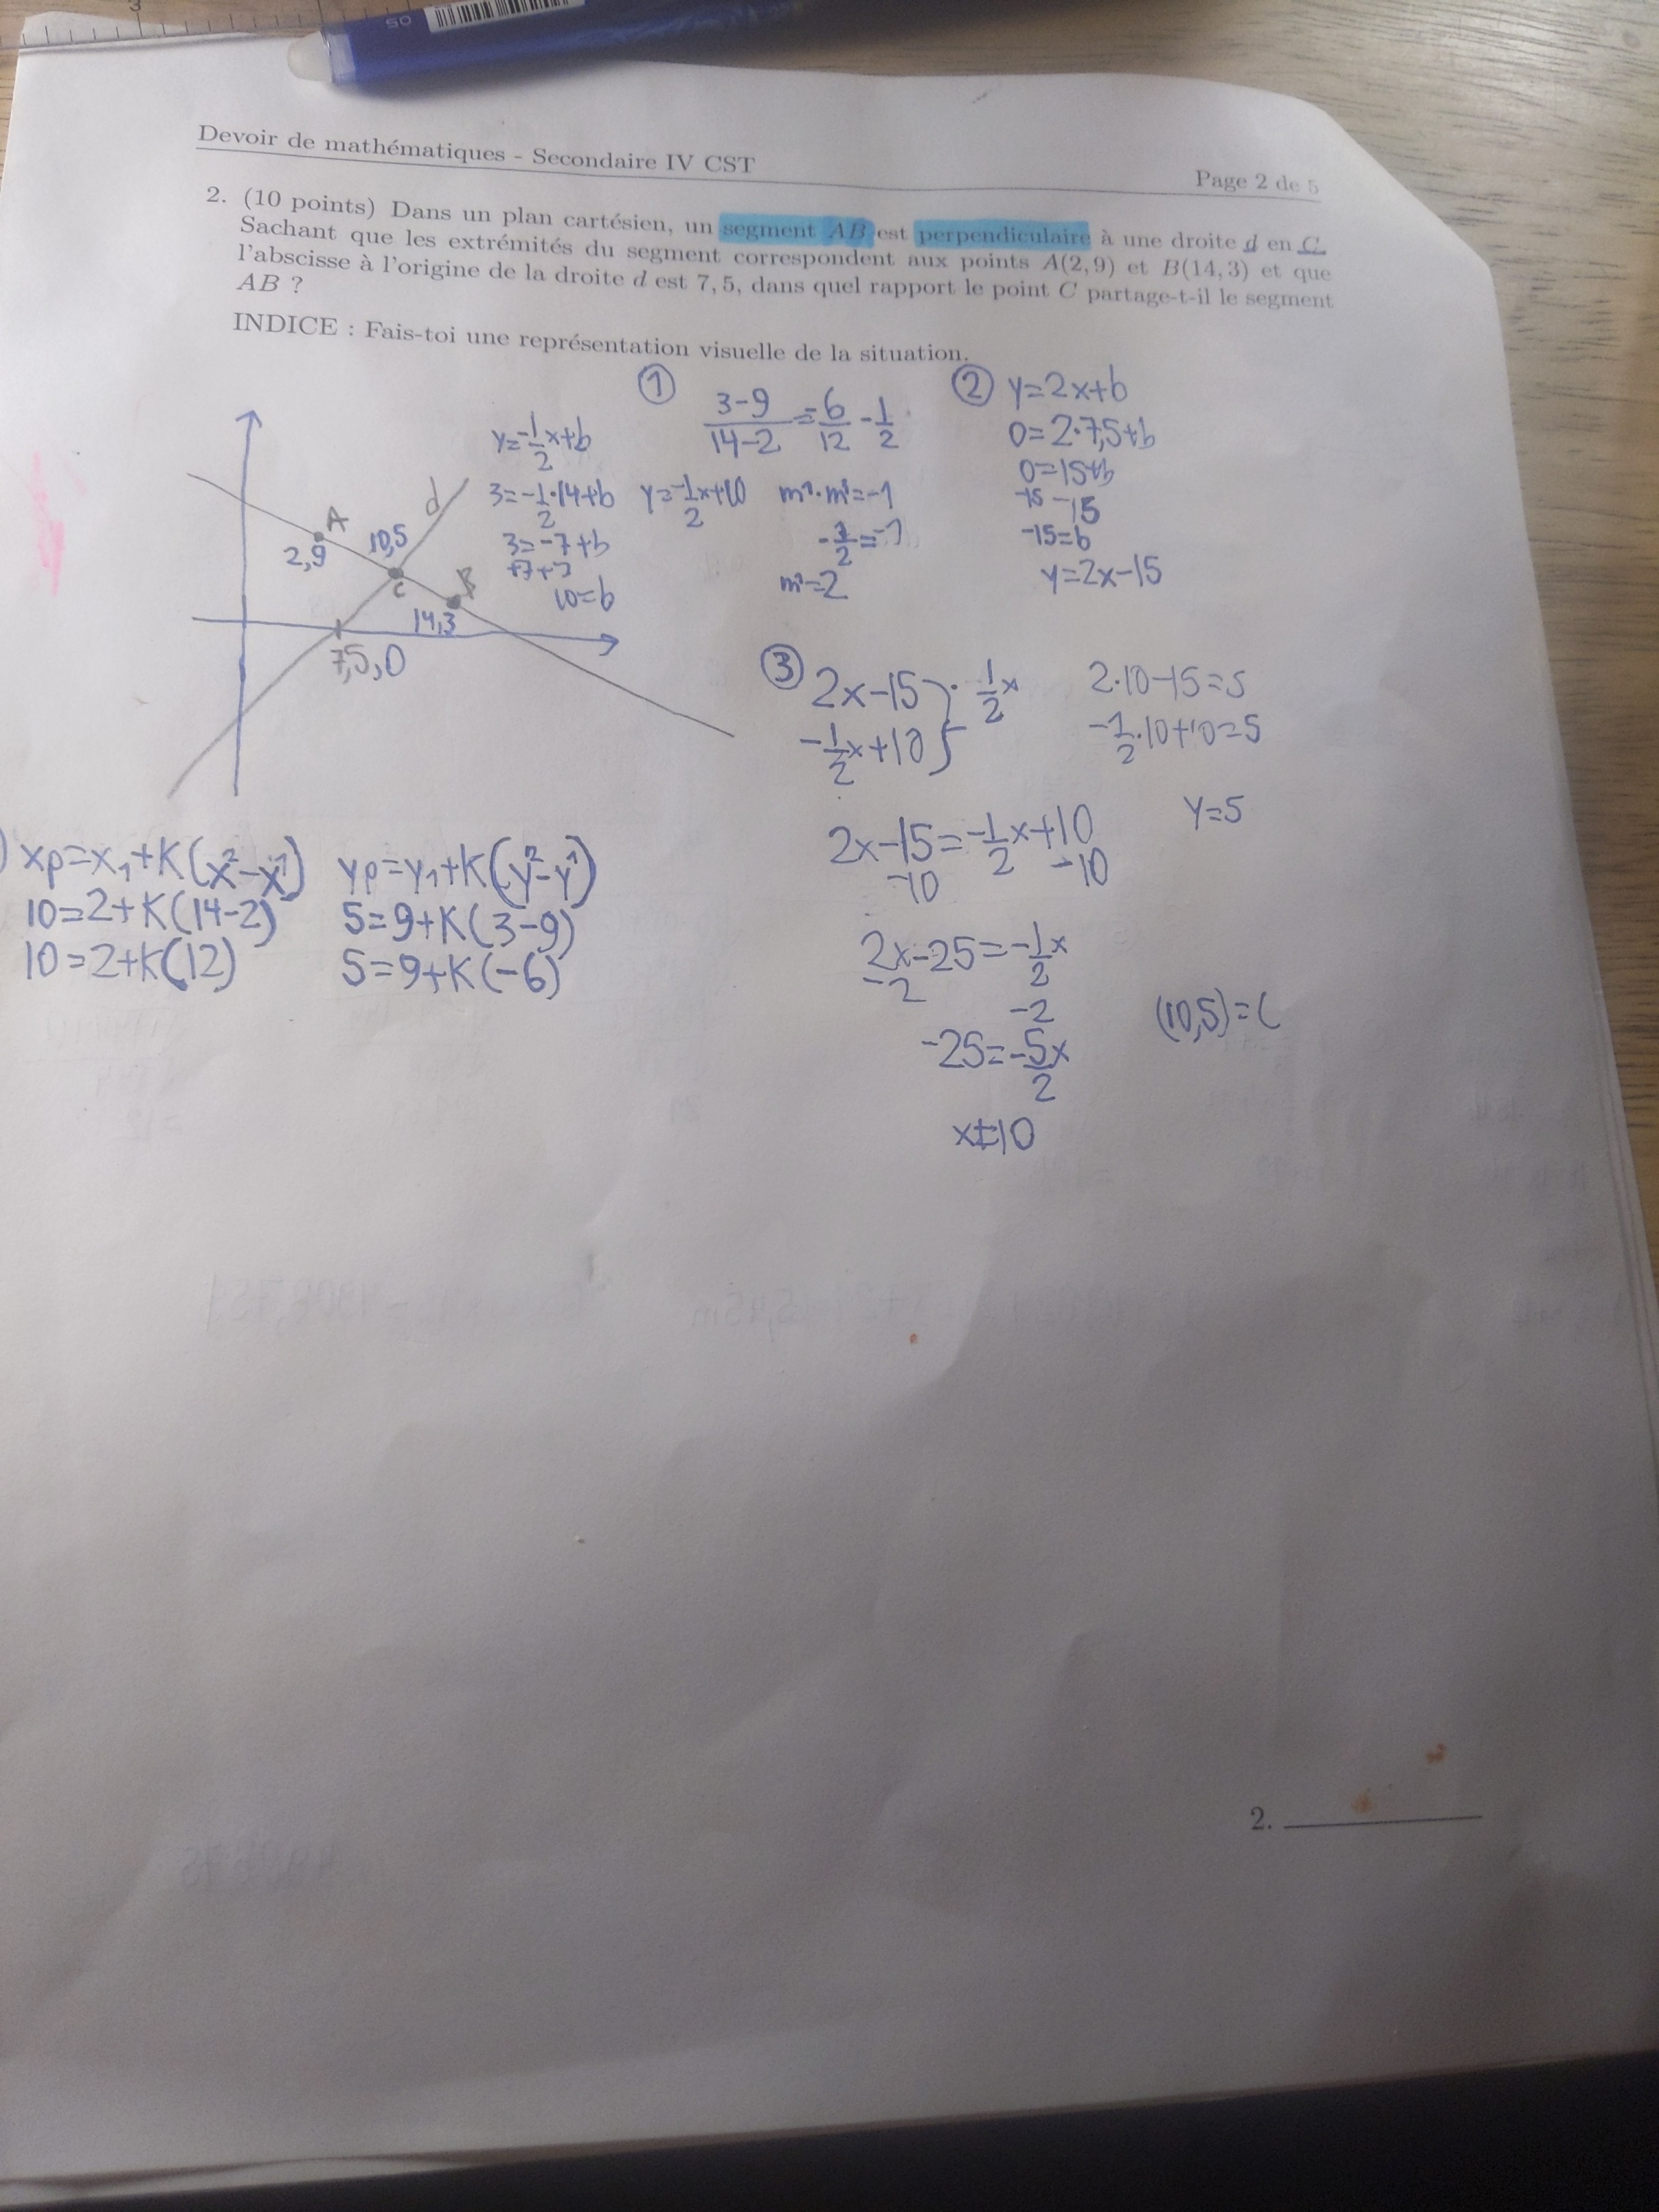 50
3
Devoir de mathématiques - Secondaire IV CST
Page 2 de 5
2. (10 points) Dans un plan cartésien, un segment AB est perpendiculaire à une droite d en C.
Sachant que les extrémités du segment correspondent aux points A(2, 9) et B(14, 3) et que
l'abscisse à l'origine de la droite d est 7, 5, dans quel rapport le point C partage-t-il le segment
AB ?
INDICE : Fais-toi une représentation visuelle de la situation.
A
2,9
10,5
d
C
B
14,3
7,5,0
y=-1/2x+b
3=-1/2·14+b
3=-7+b
+7+7
10=b
y=-1/2x+10
①
3-9/14-2=6/12-1/2
m²·m¹=-1
m²=2
②
y=2x+b
0=2·7,5+b
0=15+b
-15 -15
-15=b
y=2x-15
③
2x-15
-1/2x+10
1/2x
2x-15=-1/2x+10
-10 -10
2x-25=-1/2x
-2 -2
-25=-5/2x
x=10
2·10-15=5
-1/2·10+10=5
y=5
(10,5)=C
xp=x₁+K(x²-x¹)
10=2+K(14-2)
10=2+K(12)
yp=y₁+K(y²-y¹)
5=9+K(3-9)
5=9+K(-6)
2.